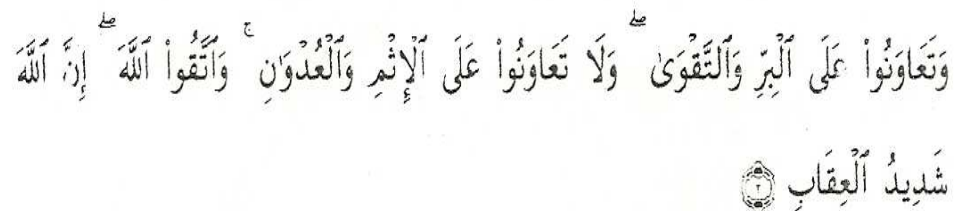 وَتَعَاوَنُوا۟ عَلَى ٱلْبِرِّ وَٱلتَّقْوَىٰ ۖ وَلَا تَعَاوَنُوا۟ عَلَى ٱلْإِثْمِ وَٱلْعُدْوَٰنِ ۚ وَٱتَّقُوا۟ ٱللَّهَ ۖ إِنَّ ٱللَّهَ
شَدِيدُ ٱلْعِقَابِ ۝٢